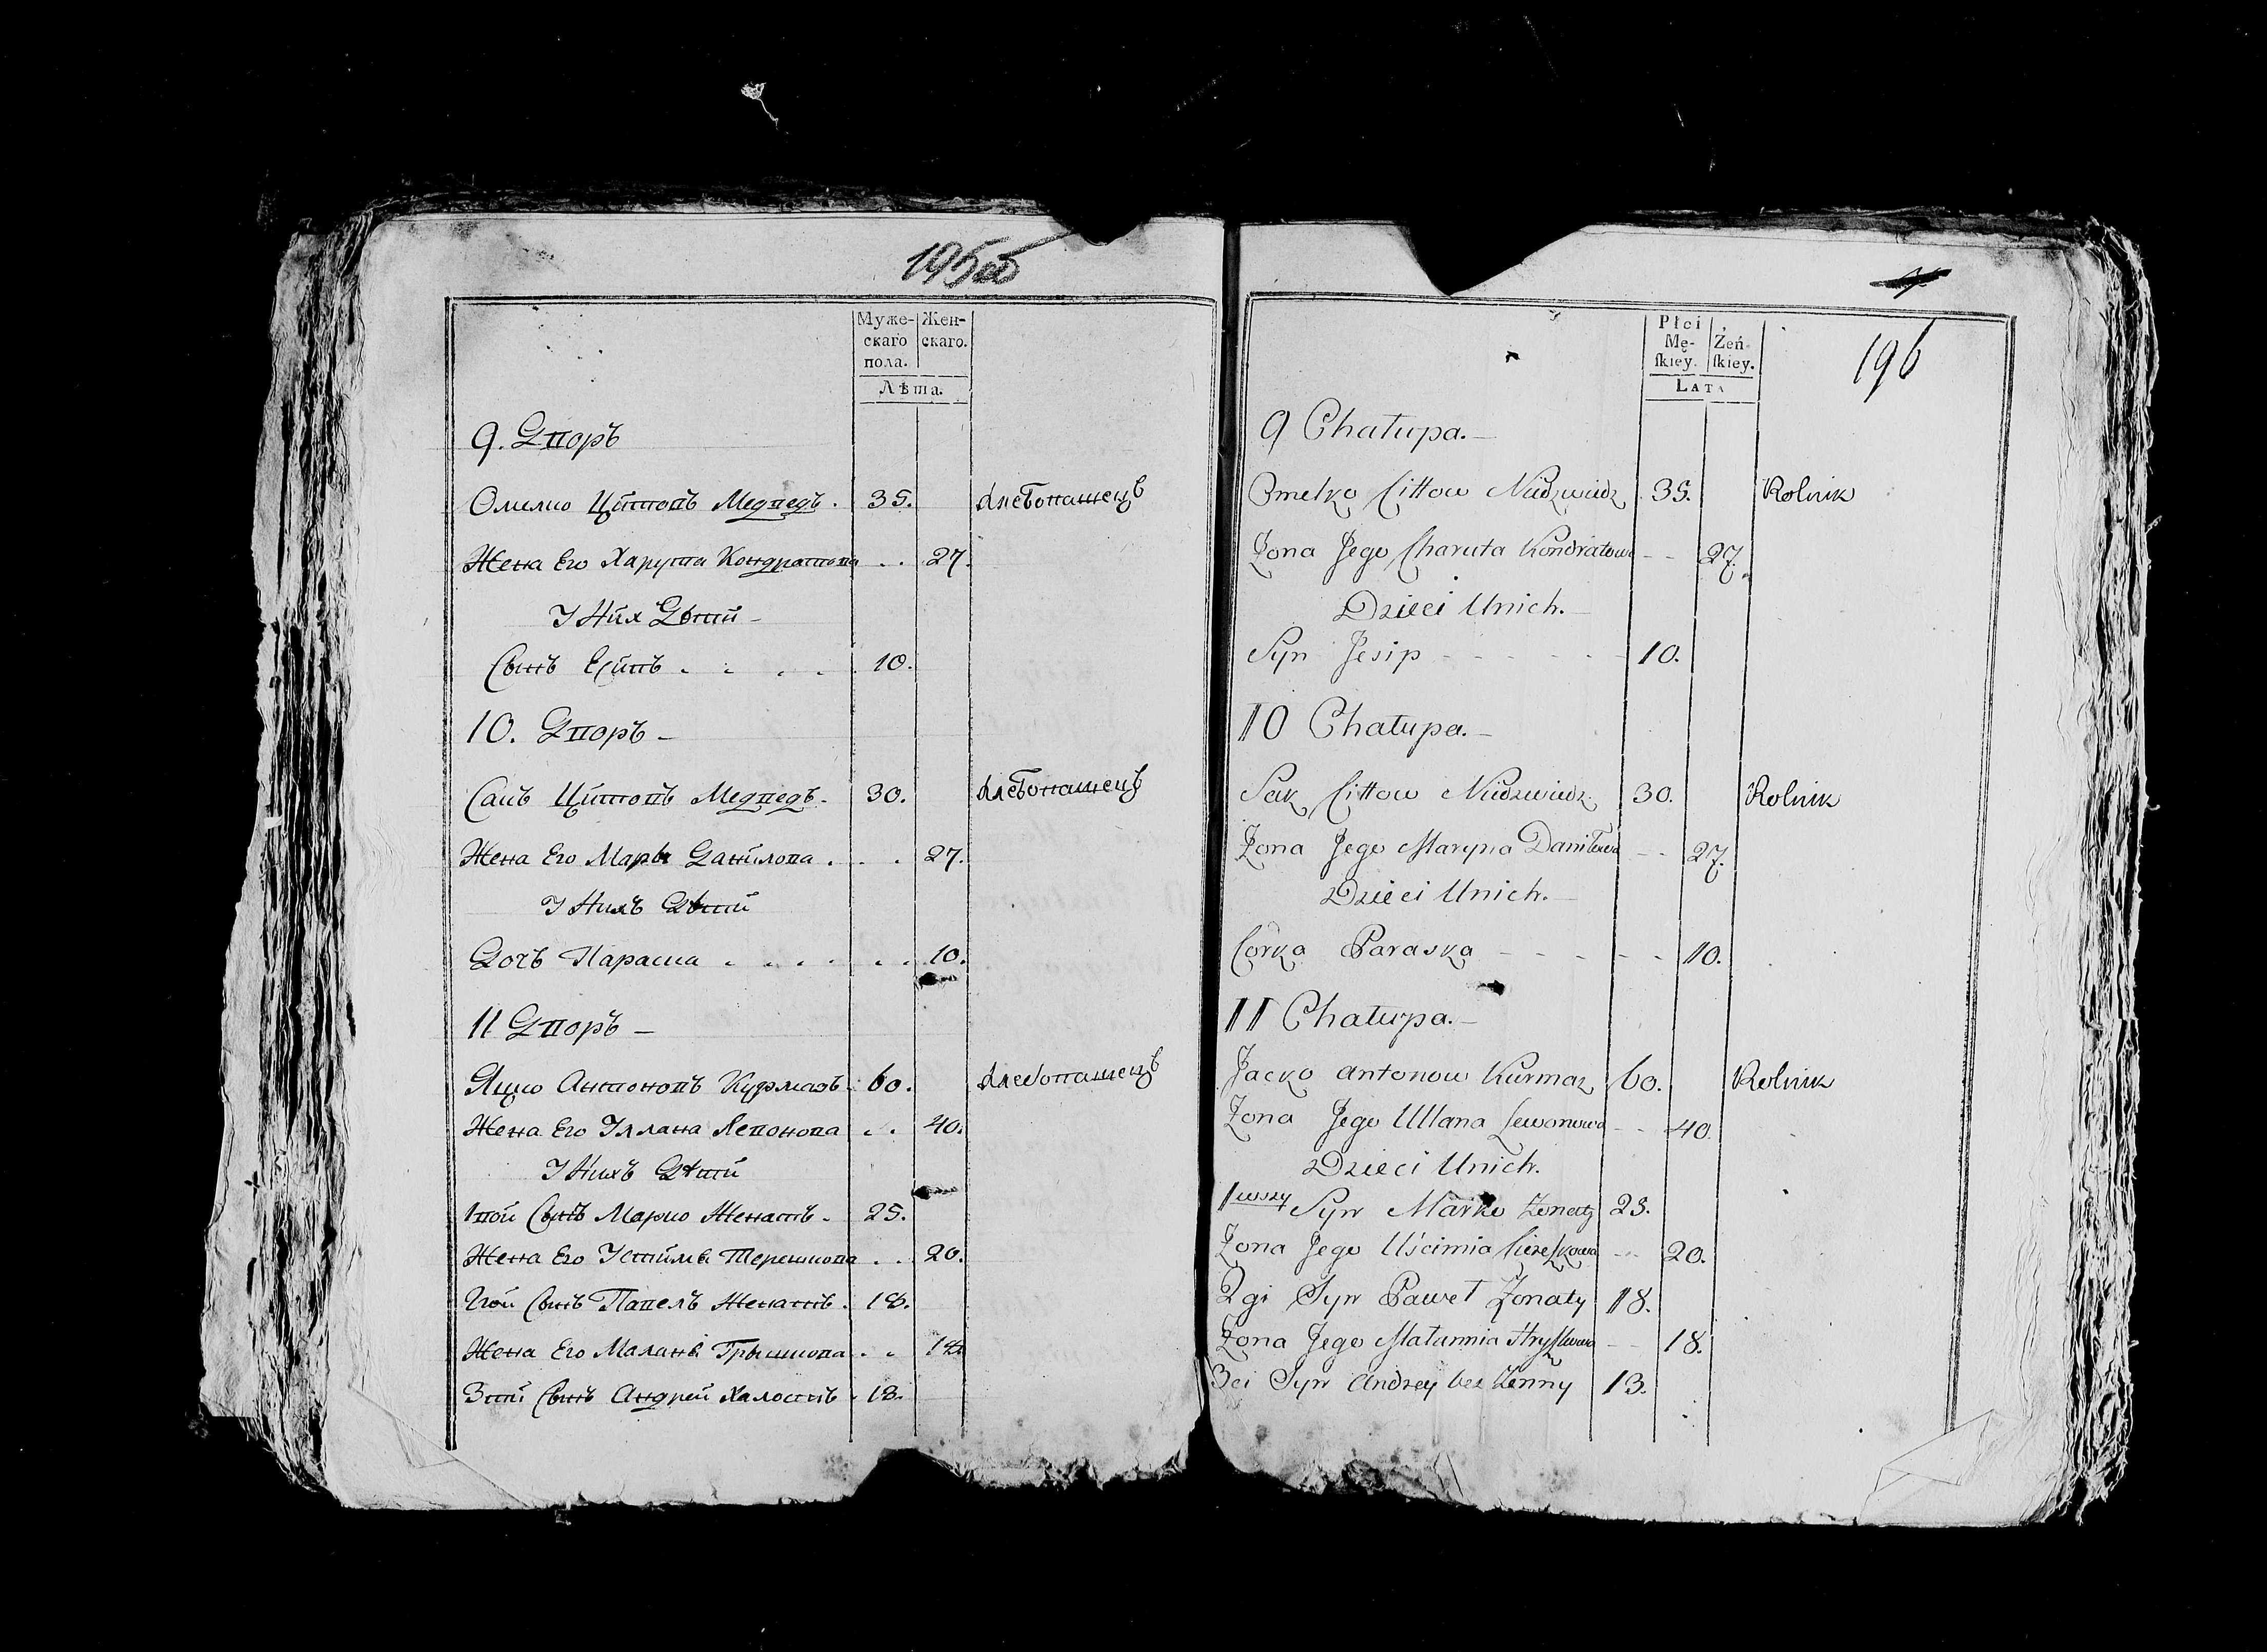 195об
Муже-
скаго
пола.
Жен-
скаго.
Лѣта.
9. Дворъ
Омелко Цитовъ Медведь. 35. хлебопашецъ
Жена Его Харута Кондратова . . 27.
У Них Дѣти -
Сынъ Есипъ . . . . 10.
10. Дворъ -
Сакъ Цитовъ Медведь. 30. хлебопашецъ
Жена Его Мары Данилова . . . 27.
У Нихъ Дѣти
Дочъ Параска . . . . . . 10.
11 Дворъ -
Яцко Антоновъ Курмазъ. 60. хлебопашецъ
Жена Его Уллана Левонова . . 40.
У Нихъ Дѣти
1вой Сынъ Марко Женатъ. 25.
Жена Его Устимя Терешкова . . 20.
2гой Сынъ Павелъ Женатъ. 18.
Жена Его Маланя Грышкова . . 18.
3тий Сынъ Андрей Халостъ . 13.
196
Płci
Mę-
ſkiey.
Żeń-
ſkiey.
LATA
9 Chałupa. -
Omelko Cittow Niedzwiedz 35. Rolnik
Zona Jego Charuta Kondratowa - - 27.
Dzieci Unich. -
Syn Jesip - - - - - - 10.
10 Chałupa. -
Sak Cittow Niedzwiedz. 30. Rolnik
Zona Jego Maryna Daniłowa - - 27.
Dzieci Unich. -
Córka Paraska - - - - - 10.
11 Chałupa. -
Jacko Antonow Kurmaz 60. Rolnik
Zona Jego Ullana Lewonowa - - 40.
Dzieci Unich.
1wszy Syn Marko Zonaty 25.
Zona Jego Uścimia Ciereſzkowa - - 20.
2gi Syn Paweł Zonaty 18.
Zona Jego Małannia Hryſzkowa - - 18.
3ci Syn Andrzey bez Zenny 13.